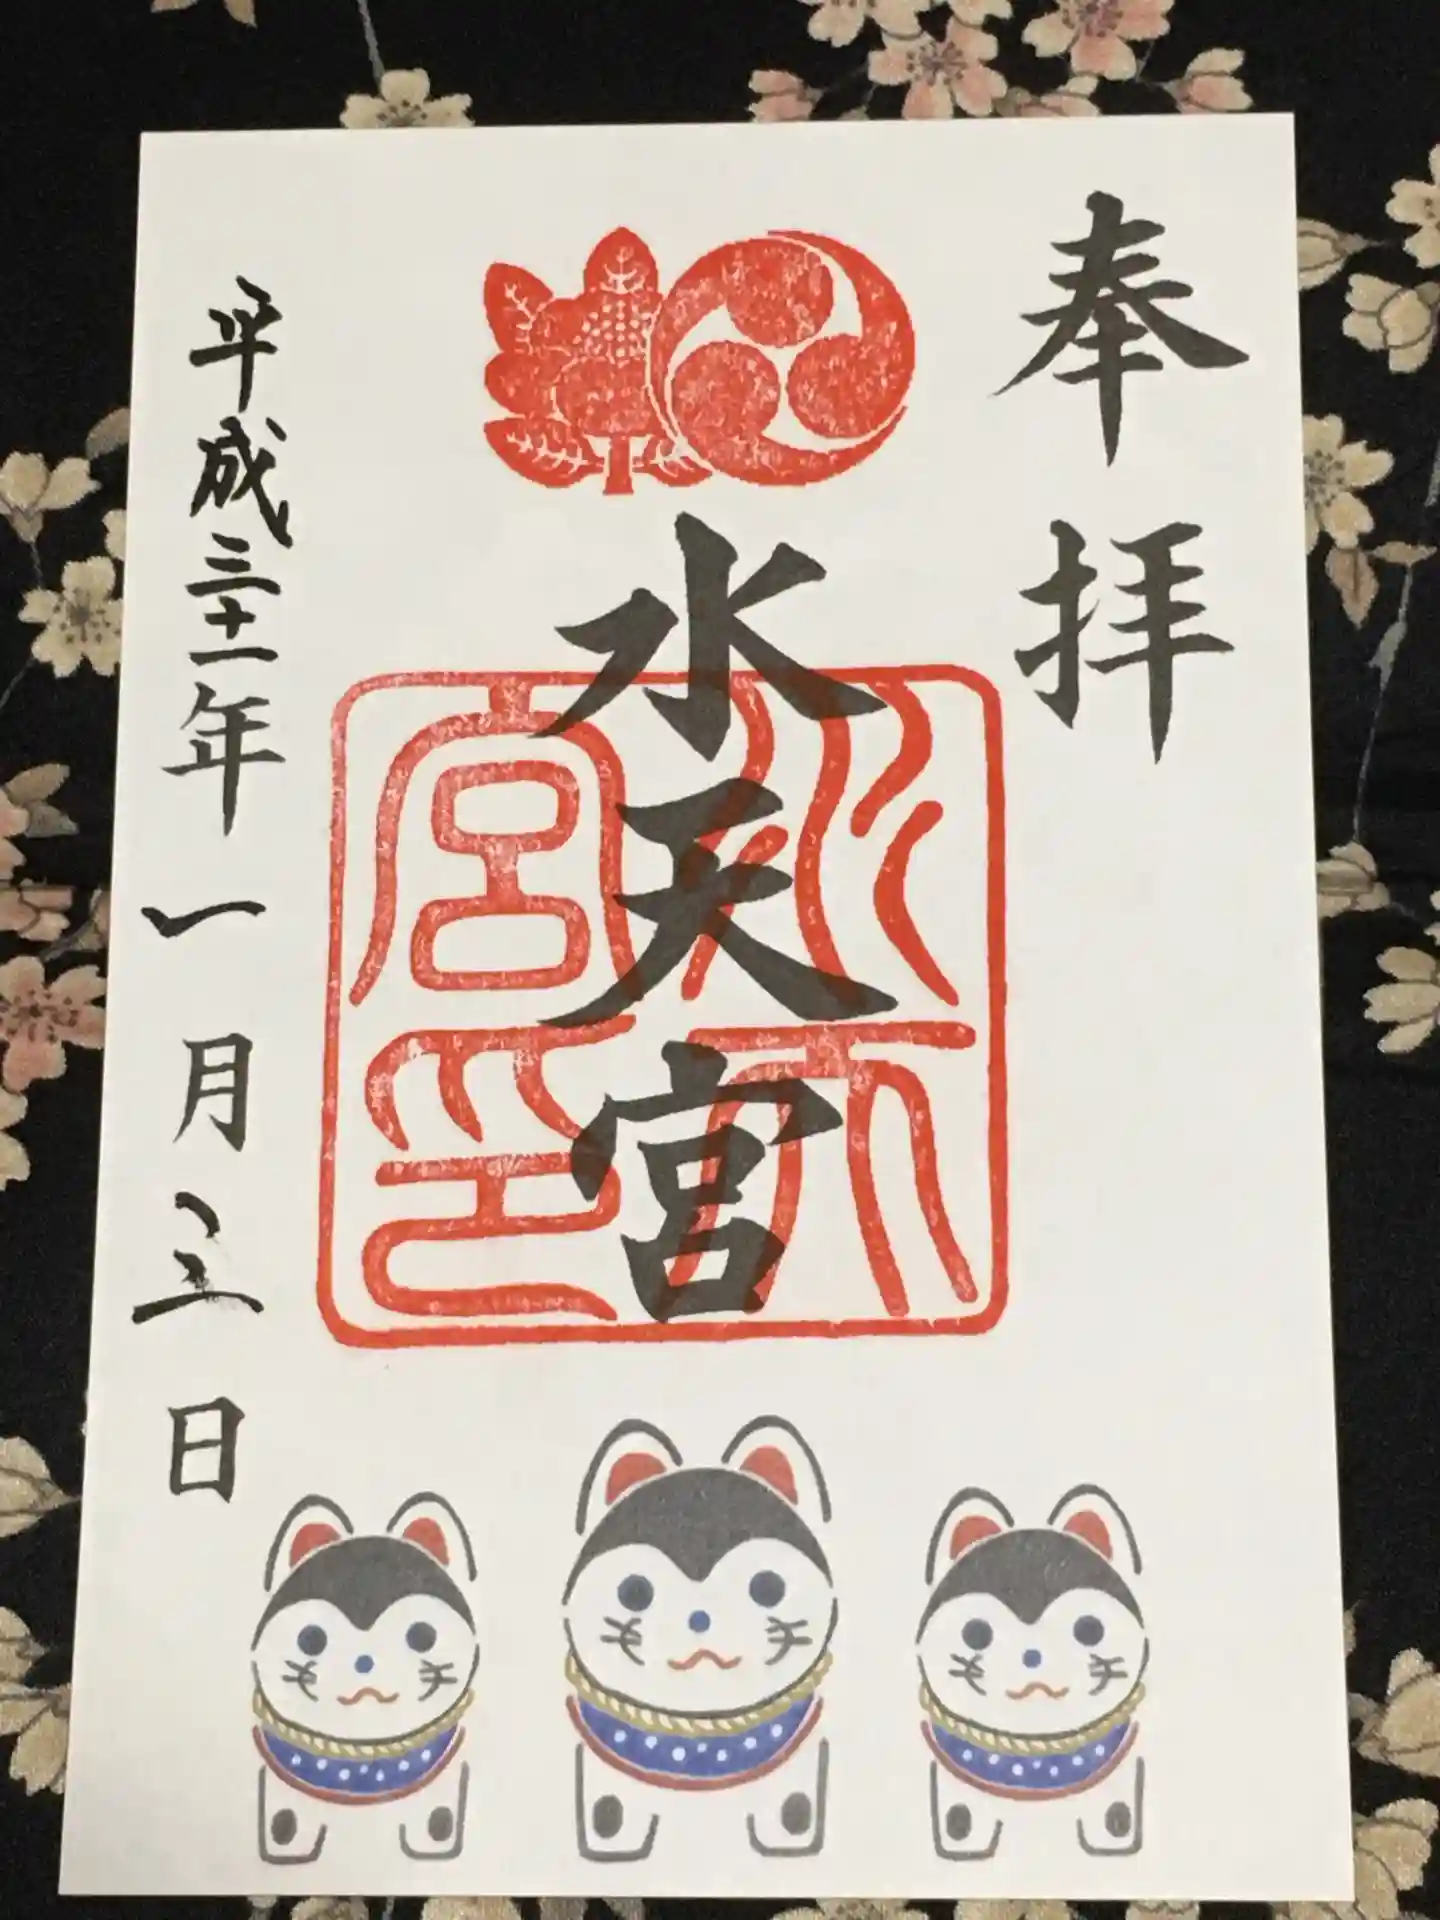 奉拝
水天宮
水天宮印
平成三十一年一月三日